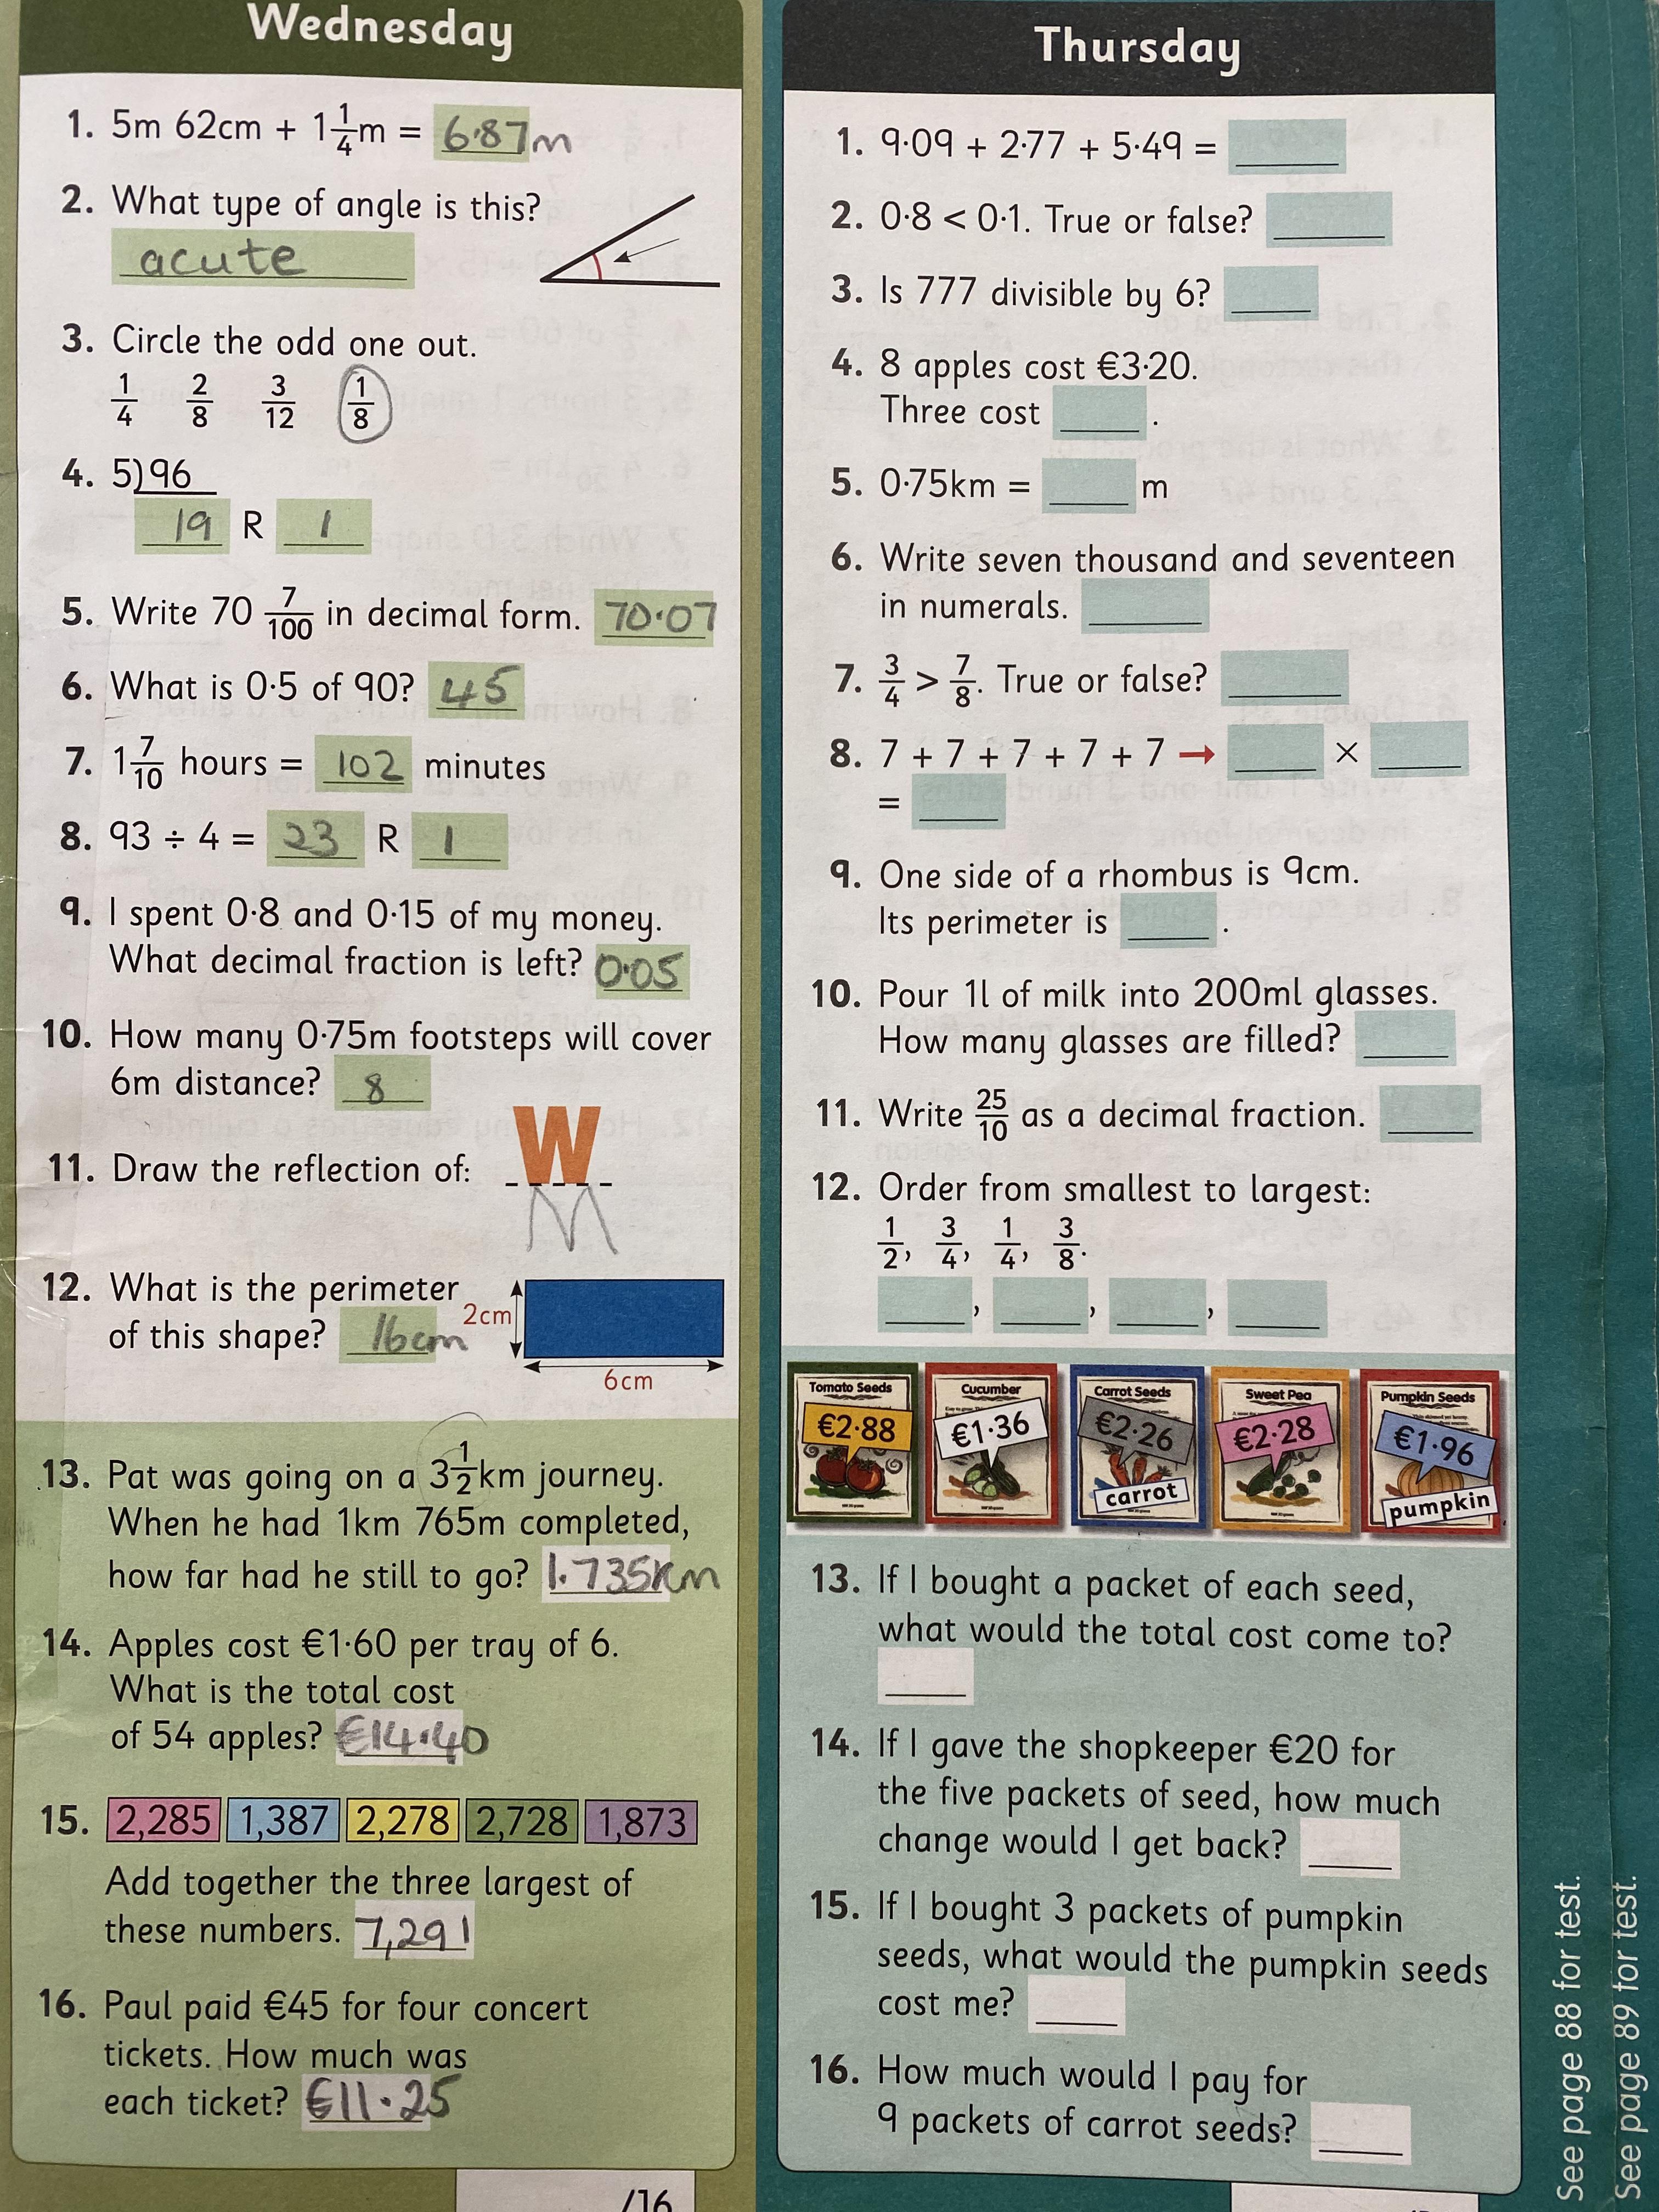 Wednesday
1. 5m 62cm + 1 1/4 m = 6·87m
2. What type of angle is this?
acute
3. Circle the odd one out.
1/4 2/8 3/12 1/8
4. 5)96
19 R 1
5. Write 70 7/100 in decimal form. 70·07
6. What is 0·5 of 90? 45
7. 1 7/10 hours = 102 minutes
8. 93 ÷ 4 = 23 R 1
9. I spent 0·8 and 0·15 of my money.
What decimal fraction is left? 0·05
10. How many 0·75m footsteps will cover
6m distance? 8
11. Draw the reflection of: W
12. What is the perimeter
of this shape? 16cm
2cm
6cm
13. Pat was going on a 3 1/2 km journey.
When he had 1km 765m completed,
how far had he still to go? 1.735km
14. Apples cost €1·60 per tray of 6.
What is the total cost
of 54 apples? €14·40
15. 2,285 1,387 2,278 2,728 1,873
Add together the three largest of
these numbers. 7,291
16. Paul paid €45 for four concert
tickets. How much was
each ticket? €11·25
/16
Thursday
1. 9·09 + 2·77 + 5·49 =
2. 0·8 < 0·1. True or false?
3. Is 777 divisible by 6?
4. 8 apples cost €3·20.
Three cost .
5. 0·75km = m
6. Write seven thousand and seventeen
in numerals.
7. 3/4 > 7/8. True or false?
8. 7 + 7 + 7 + 7 + 7 → ×
=
9. One side of a rhombus is 9cm.
Its perimeter is .
10. Pour 1l of milk into 200ml glasses.
How many glasses are filled?
11. Write 25/10 as a decimal fraction.
12. Order from smallest to largest:
1/2, 3/4, 1/4, 3/8.
, , ,
Tomato Seeds
€2·88
Cucumber
€1·36
Carrot Seeds
€2·26
carrot
Sweet Pea
€2·28
Pumpkin Seeds
€1·96
pumpkin
13. If I bought a packet of each seed,
what would the total cost come to?
14. If I gave the shopkeeper €20 for
the five packets of seed, how much
change would I get back?
15. If I bought 3 packets of pumpkin
seeds, what would the pumpkin seeds
cost me?
16. How much would I pay for
9 packets of carrot seeds?
See page 88 for test.
See page 89 for test.